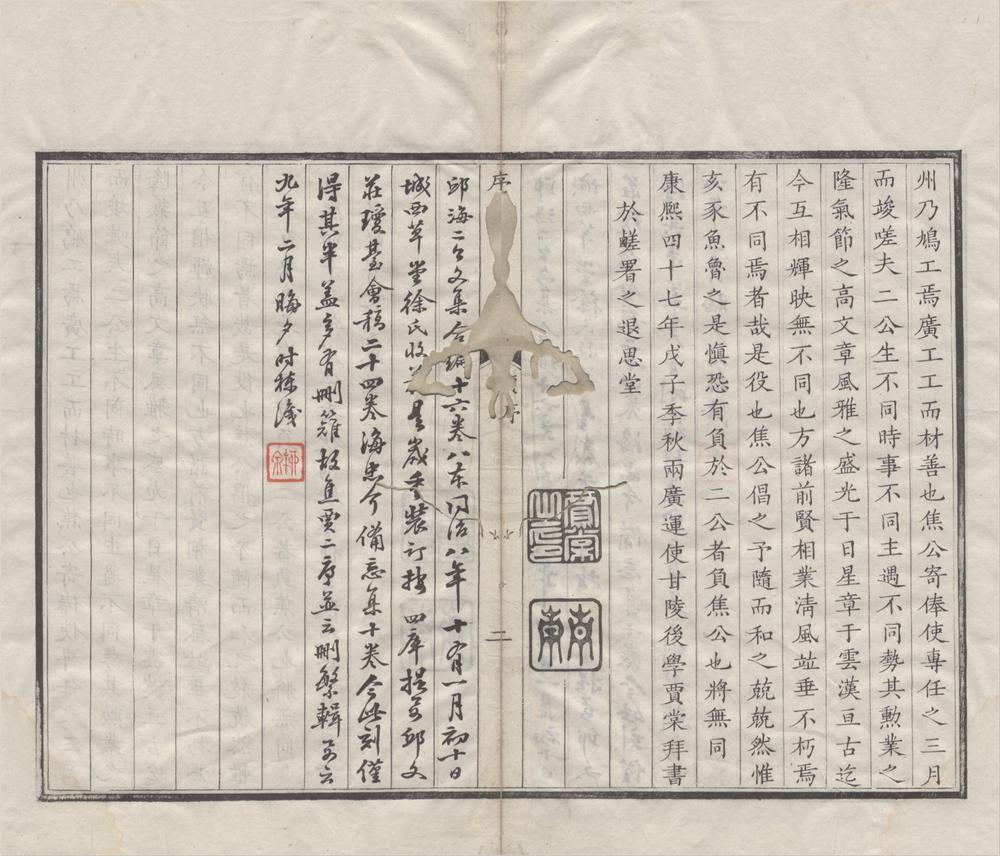 州乃鳩工焉廣工工而材善也焦公寄俸使專任之三月
而竣嗟夫二公生不同時事不同主遇不同勢其勲業之
隆氣節之高文章風雅之盛光于日星章于雲漢亘古迄
今互相輝映無不同也方諸前賢相業清風竝垂不朽焉
有不同焉者哉是役也焦公倡之予隨而和之兢兢然惟
亥豕魚魯之是愼恐有負於二公者負焦公也將無同
康熙四十七年戊子季秋兩廣運使甘陵後學賈棠拜書
於鹺署之退思堂
賈棠之印
序
二
邱海二公文集合編十六卷八本同治八年十有一月初十日
城西草堂徐氏收藏是歲重裝訂按四庫提要邱文
莊瓊臺會稿二十四卷海忠介備忘集十卷今此刻僅
得其半蓋多有刪薙故焦賈二序並云刪繁輯要云
九年二月晦夕時棟識
柳泉